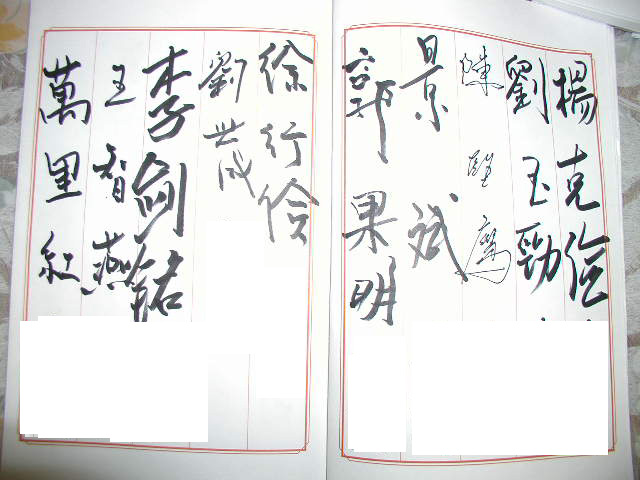 楊克儉
劉玉勁
陳
景斌
郭果明
徐行儉
劉世茂
李劍銘
王智燕
萬里紅